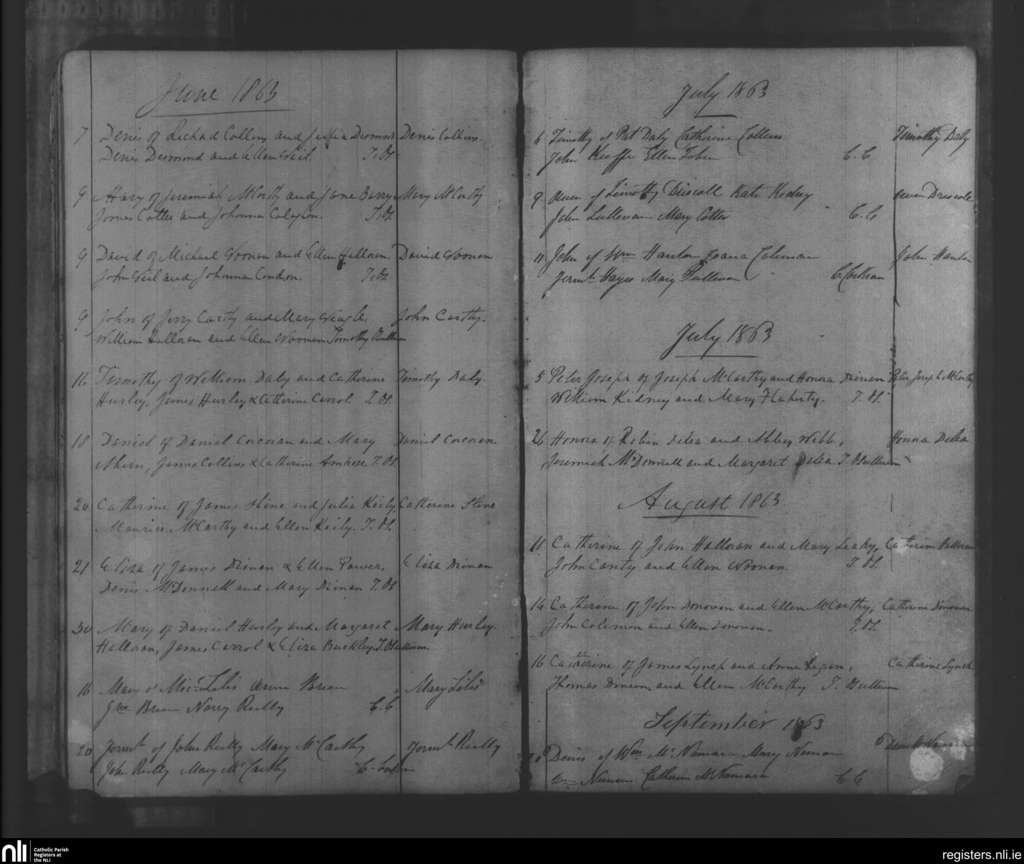 June 1863
7 Denis of Richard Collins and Julia Desmond Denis Collins.
Denis Desmond and Ellen Neil. T. OS.
9 Mary of Jeremiah McCarthy and Jane Barry Mary McCarthy
James Cotter and Johanna T. OS.
9 David of Michael Noonan and Ellen Halloran David Noonan
John Neil and Johanna Condon. T. OS.
9 John of Jerry Carthy and Mary John Carthy.
William Halloran and Ellen Noonan Timothy
16 Timothy of William Daly and Catherine Timothy Daly
Hurley. James Hurley & Catherine Carrol T. OS.
18 Daniel of Daniel Corcoran and Mary Daniel Corcoran
Ahern, James Collins & Catherine T. OS.
20 Catherine of James and Julia Keily Catherine
Maurice McCarthy and Ellen Keily. T. OS.
21 Eliza of James Drinan & Ellen Power, Eliza Drinan
Denis McDonnell and Mary Drinan T. OS
30 Mary of Daniel Hurley and Margaret Mary Hurley.
Halloran, James Carrol & Eliza Buckley.
16 Mary of Brien Mary
Brien Norry Reilly C. C
20 of John Reilly Mary McCarthy Reilly
John Reilly Mary McCarthy
July 1863
6 Timothy of Pat Daly Catherine Collins Timothy Daly
John Keeffe Ellen C. C
9 Owen of Timothy Driscoll Kate Owen Driscole
John Sullevan Mary Cotter C. C
11 John of Wm Hanlon Joana Coleman John Hanlon
Hayes Mary Sullivan
July 1863
5 Peter Joseph of Joseph McCarthy and Honora Drinan Peter Joseph McCarthy
William Kidney and Mary Flaherty. T. OS.
26 Honora of Robin Delea and Abbey Webb, Honora Delea
Jeremiah McDonnell and Margaret Delea T. OSullivan
August 1863
11 Catherine of John Halloran and Mary Leahy, Catherine Halloran
John Canty and Ellen Noonan. T. OS.
14 Catherine of John Donovan and Ellen McCarthy, Catherine Donovan
John Coleman and Ellen Donovan. T. OS.
16 Catherine of James Lynch and Anne Regan, Catherine Lynch
Thomas Drinan and Ellen McCarthy T.
September 1863
Denis of Wm McNamara Mary
Catherine McNamara C C
nli
Catholic Parish
Registers at
the NLI
registers.nli.ie